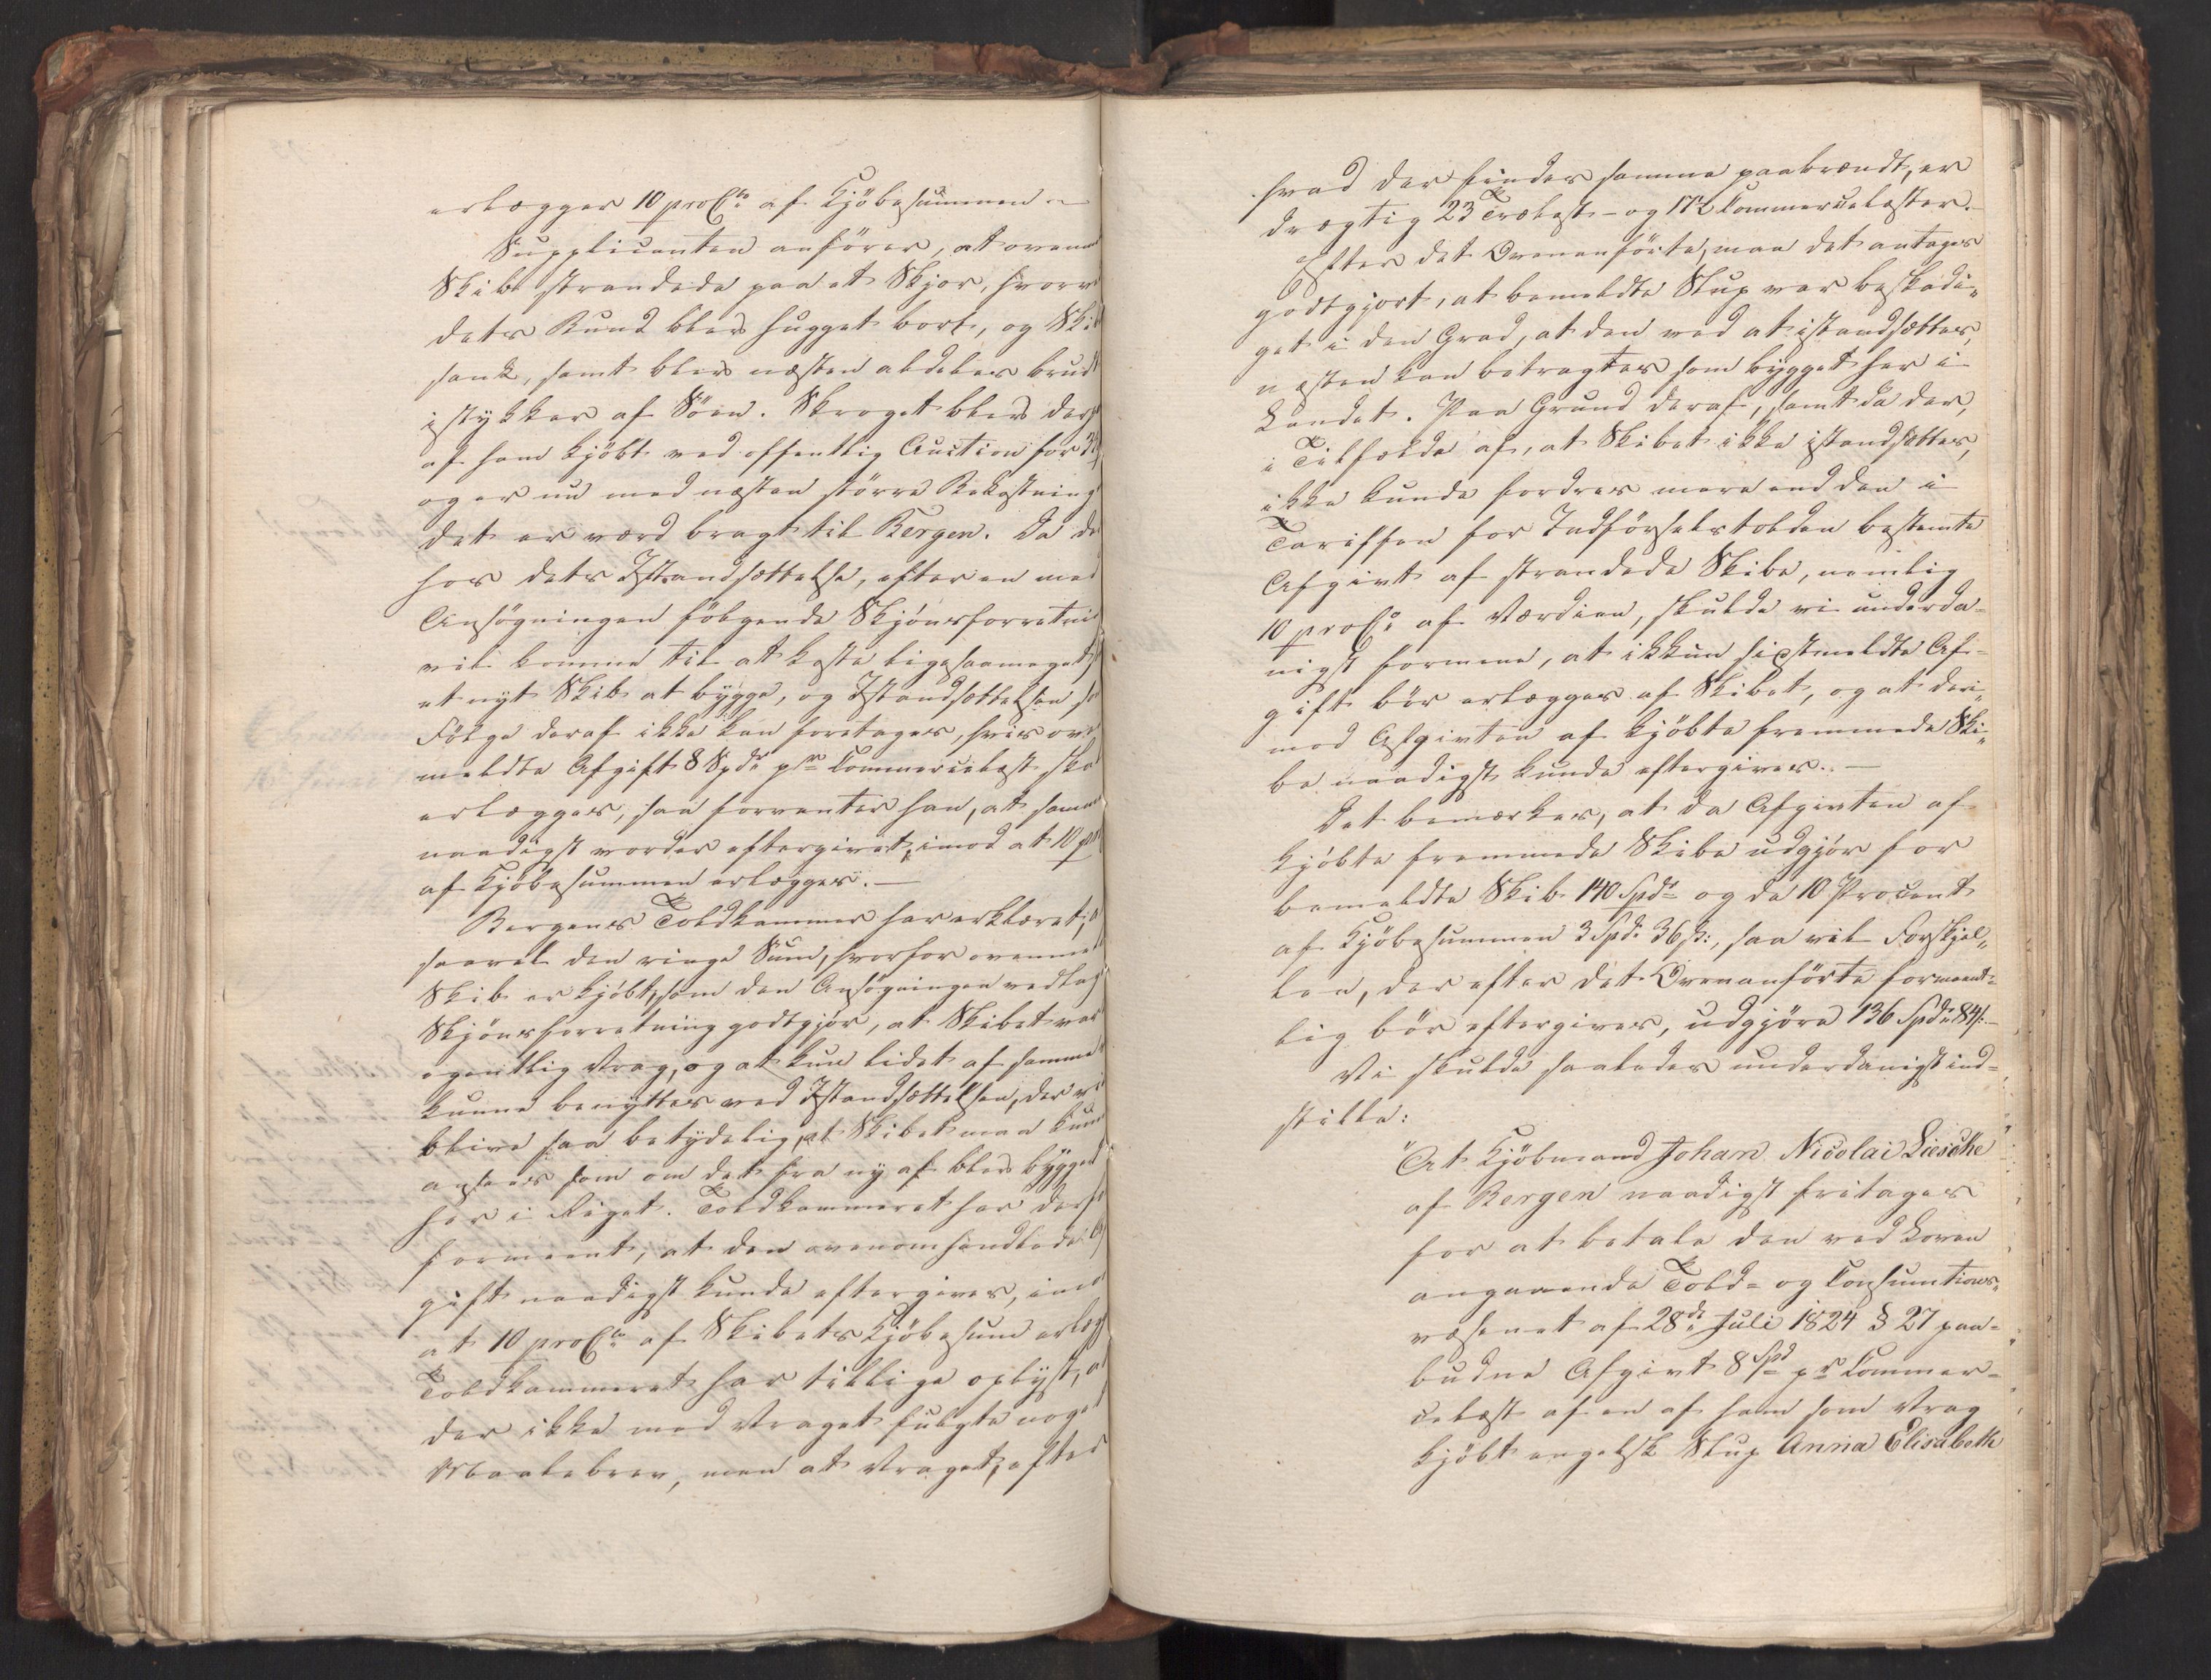 erlægges 10 proC<sup>to</sup> af Kjöbesummen
Supplicanten anförer, at ovenm
Skib strandede paa et Skjær, hvorv
dets Bund blev hugget bort, og Ski
sank, samt blev næsten aldeles brudt
istykker af Söen. Skroget blev derp
af ham kjöbt ved offentlig Auction for
og er nu med næsten större Bekostning
det er værd bragt til Bergen. Da de
hos dets Istandsættelse, efter en med
Ansögningen fölgende Skjönsforretni
vil komme til at koste ligesaameget s
et nyt Skib at bygge, og Istandsættelsen so
Fölge deraf ikke kan foretages, hvis ov
meldte Afgift 8 Spd. pr. Commercelæst ska
erlægges, saa forventer han, at samm
naadigst vorder eftergivet, imod at 10 pro
af Kjöbesummen erlægges.—
Bergens Toldkammer har erklæret, a
saavel den ringe Sum, hvorfor ovenme
Skib er kjöbt, som den Ansögningen vedlag
Skjönsforretning godtgjör, at Skibet var
egentlig Vrag, og at kun lidet af samme
kunne benyttes ved Istandsættelsen, der vi
blive saa betydelig, at Skibet maa kun
ansees som om det fra ny af blev bygget
her i Riget. Toldkammeret har derfo
formeent, at den ovenomhandlede Af
gift naadigst kunde eftergives, imo
at 10 proC<sup>to</sup> af Skibets Kjöbesum erlæg
Toldkammeret har tillige oplyst, a
der ikke med Vraget fulgte noget
Maalebrev, men at Vraget, efter
hvad der findes samme paabrændt, er
drægtig 23 Trælast- og 17½ Commercelæster.
Efter det Ovenanförte, maa det antages
godtgjort, at bemeldte Slup var beskadi„
get i den Grad, at den ved at istandsættes,
næsten kan betragtes som bygget her i
Landet. Paa Grund deraf, samt da der,
i Tilfælde af, at Skibet ikke istandsættes,
ikke kunde fordres mere end den i
Tariffen for Indförselstolden bestemte
Afgivt af strandede Skibe, nemlig
10 proC<sup>to</sup> af Værdien, skulde vi underda-
nigst formene, at ikkun sidstmeldte Af-
gift bör erlægges af Skibet, og at deri„
mod Afgivten af kjöbte fremmede Ski„
be naadigst kunde eftergives.—
Det bemærkes, at da Afgivten af
kjöbte fremmede Skibe udgjör for
bemeldte Skib 140 Spd. og da 10 Procent
af Kjöbesummen 3 Spd. 36 ß:, saa vil Forskjel„
len, der efter det Ovenanförte formeent-
lig bör eftergives, udgjöre 136 Spd. 84 ß.—
Vi skulde saaledes underdanigst ind-
stille:
"At Kjöbmand Johan Nicolai Liesche
af Bergen naadigst fritages
for at betale den ved Loven
angaaende Told- og Consumtions„
væsenet af 28<sup>de</sup> Juli 1824 § 27 paa-
budne Afgivt 8 Spd. pr. Commer-
celæst af en af ham som Vrag
kjöbt engelsk Slup Anna Elisabeth